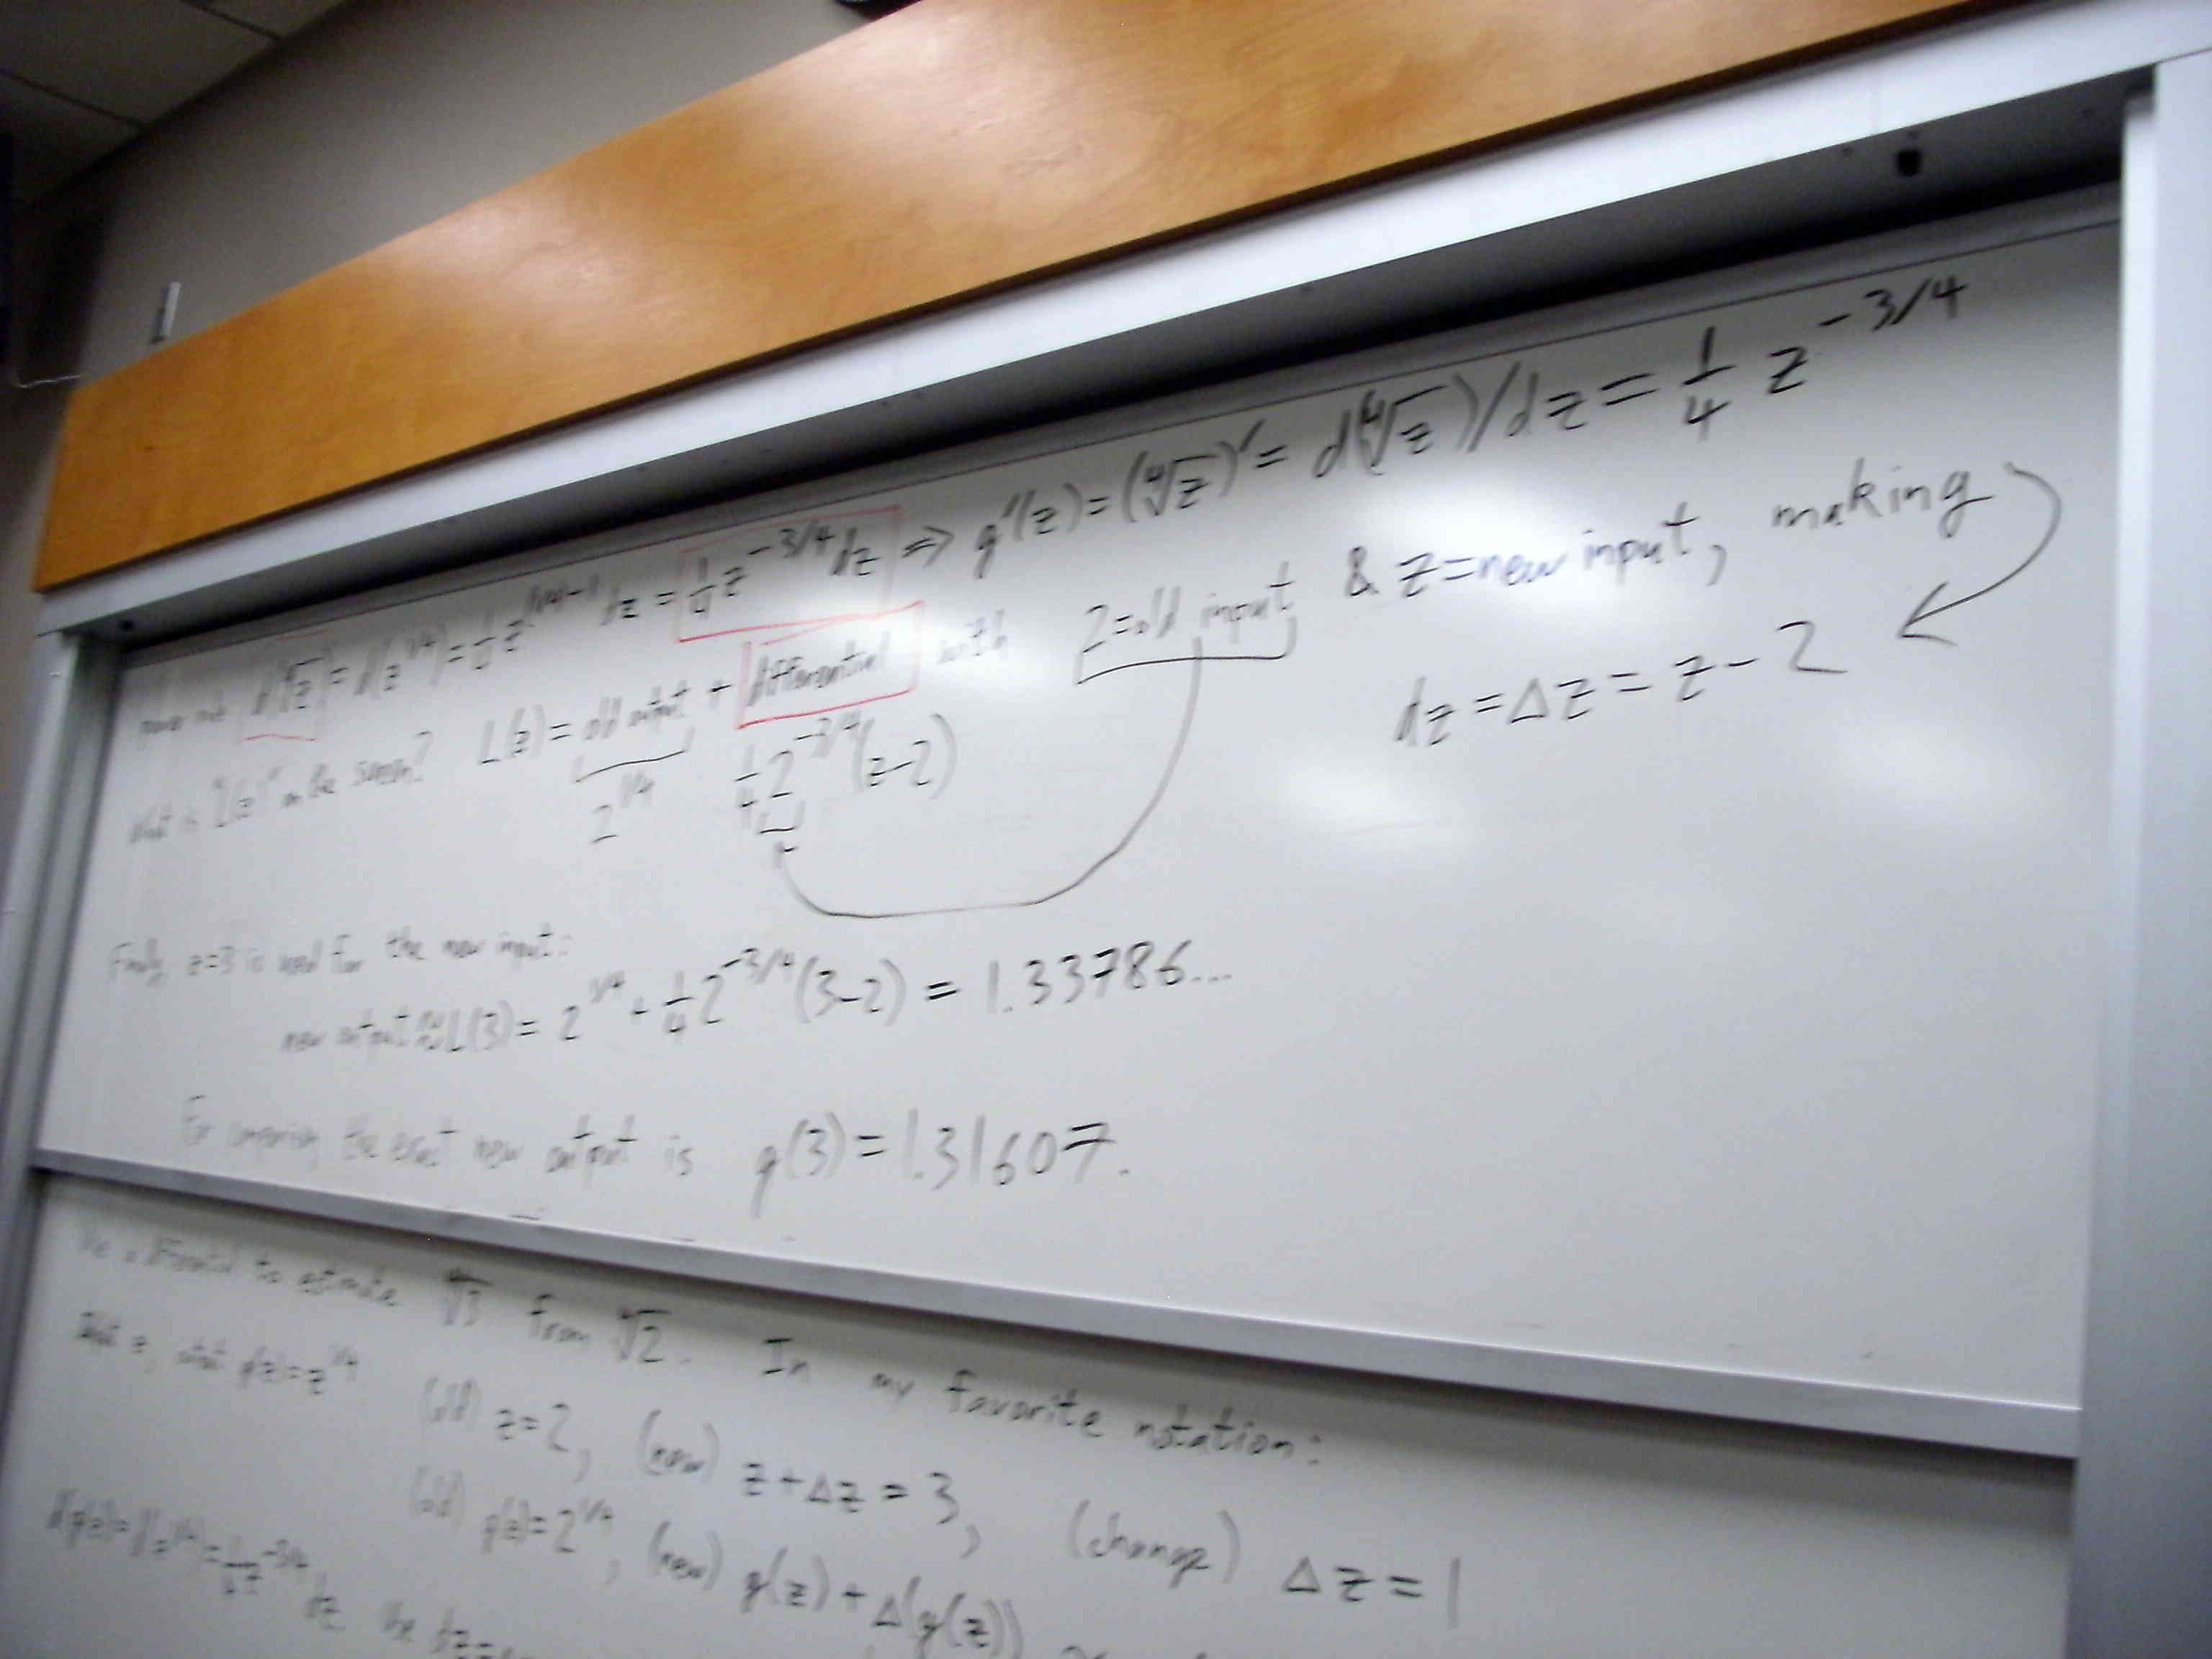 power rule d(∜z) = d(z^1/4) = 1/4 z^(1/4)-1 dz = 1/4 z^-3/4 dz ⇒ g'(z) = (∜z)' = d(∜z)/dz = 1/4 z^-3/4
What is "L(z)" on the screen? L(z) = old output + differential with 2=old input & z=new input, making
2^1/4 1/4 2^-3/4 (z-2) dz = Δz = z-2
Finally, z=3 is used for the new input:
new output ≈ L(3) = 2^1/4 + 1/4 2^-3/4 (3-2) = 1.33786...
For comparison, the exact new output is g(3) = 1.31607.
Use a differential to estimate ∜3 from ∜2. In my favorite notation:
z, output g(z)=z^1/4 (old) z=2, (new) z+Δz = 3, (change) Δz = 1
(old) g(z)=2^1/4, (new) g(z)+Δ(g(z))
d(g(z)) = d(z^1/4) = 1/4 z^-3/4 dz